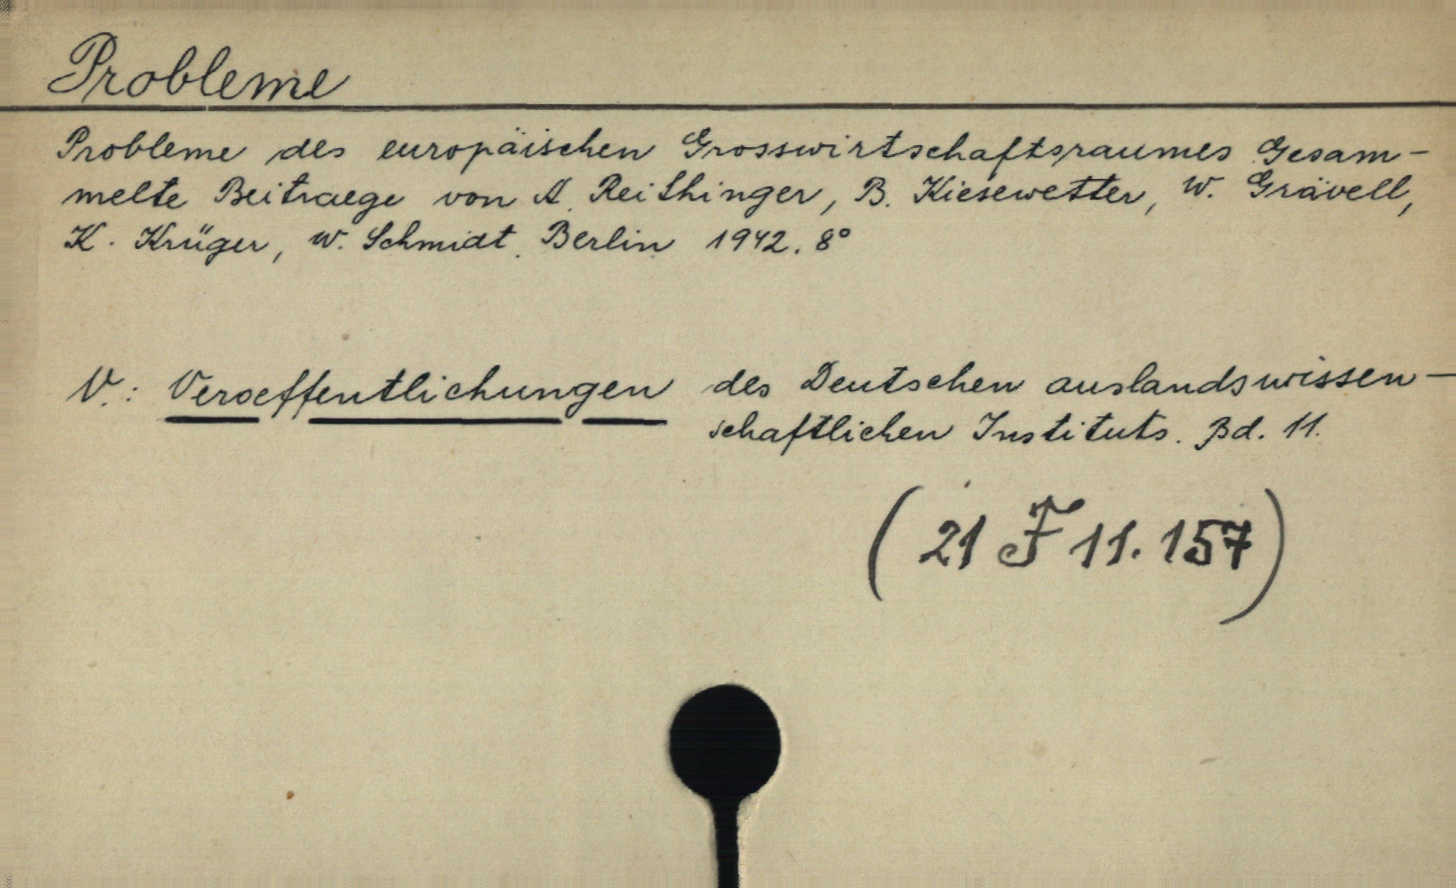 Probleme
Probleme des europäischen Grosswirtschaftsraumes Gesam-
melte Beitraege von A. Reithinger, B. Kiesewetter, W. Grävell,
K. Krüger, W. Schmidt. Berlin 1942. 8°
V.: Veroeffentlichungen des Deutschen auslandswissen-
schaftlichen Instituts. Bd. 11.
(21 F 11.157)